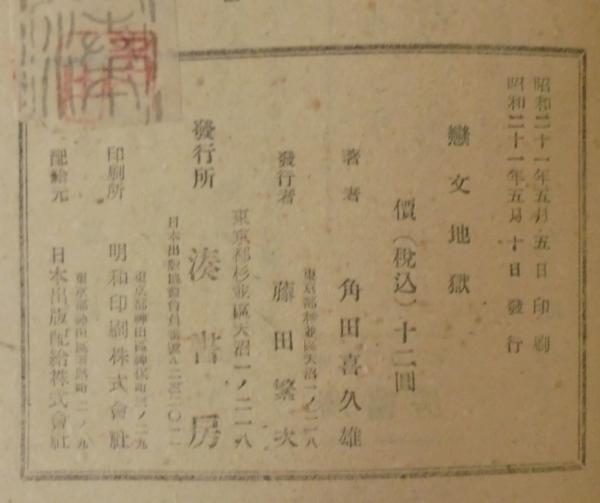 昭和二十一年五月五日印刷
昭和二十一年五月十日發行
戀文地獄
價(稅込)十二圓
著者 角田喜久雄
東京都杉並區天沼一ノ二一八
發行者 藤田繁次
東京都杉並區天沼一ノ二一八
發行所 湊書房
日本出版協會會員番號
東京都神田區神保町三ノ二九
印刷所 明和印刷株式會社
東京都神田區淡路町二ノ九
配給元 日本出版配給株式會社